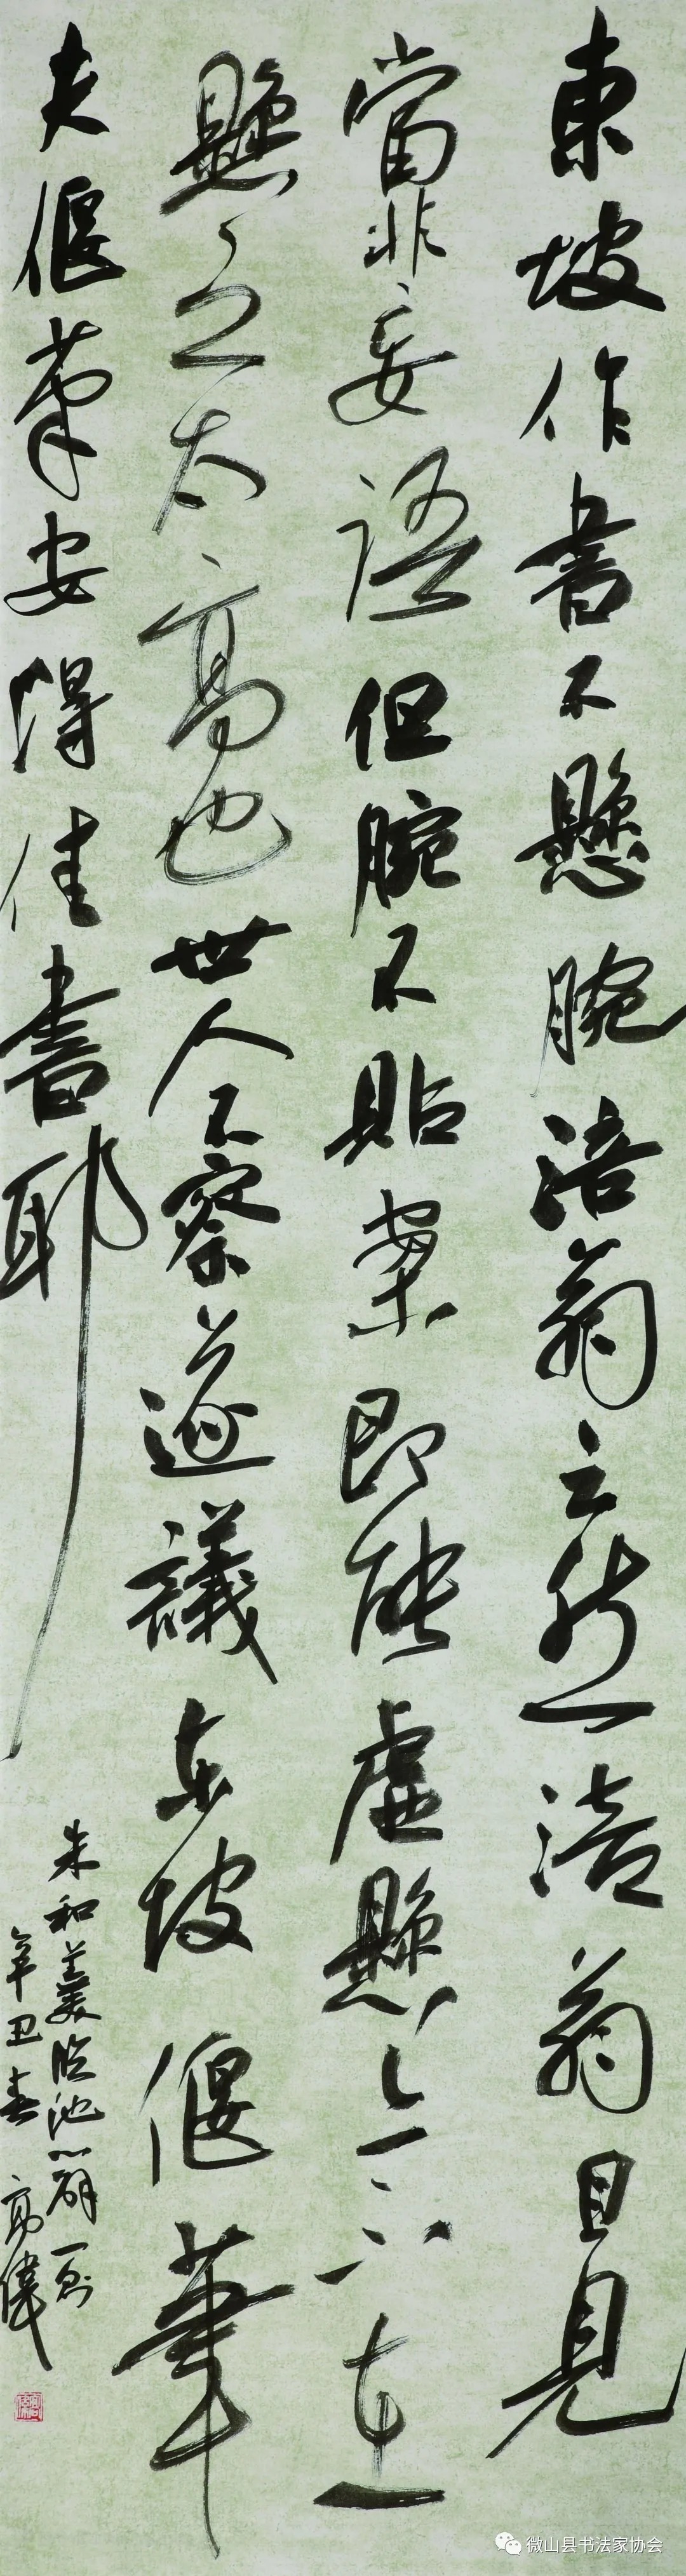 東坡作書不懸腕涪翁云然涪翁目見
當非妄語但腕不貼案即能虛懸正不在
懸之太高也世人不察遂議東坡偃筆
夫偃筆安得佳書耶
朱和羹臨池心解一則
辛丑春 高偉
微山县书法家协会